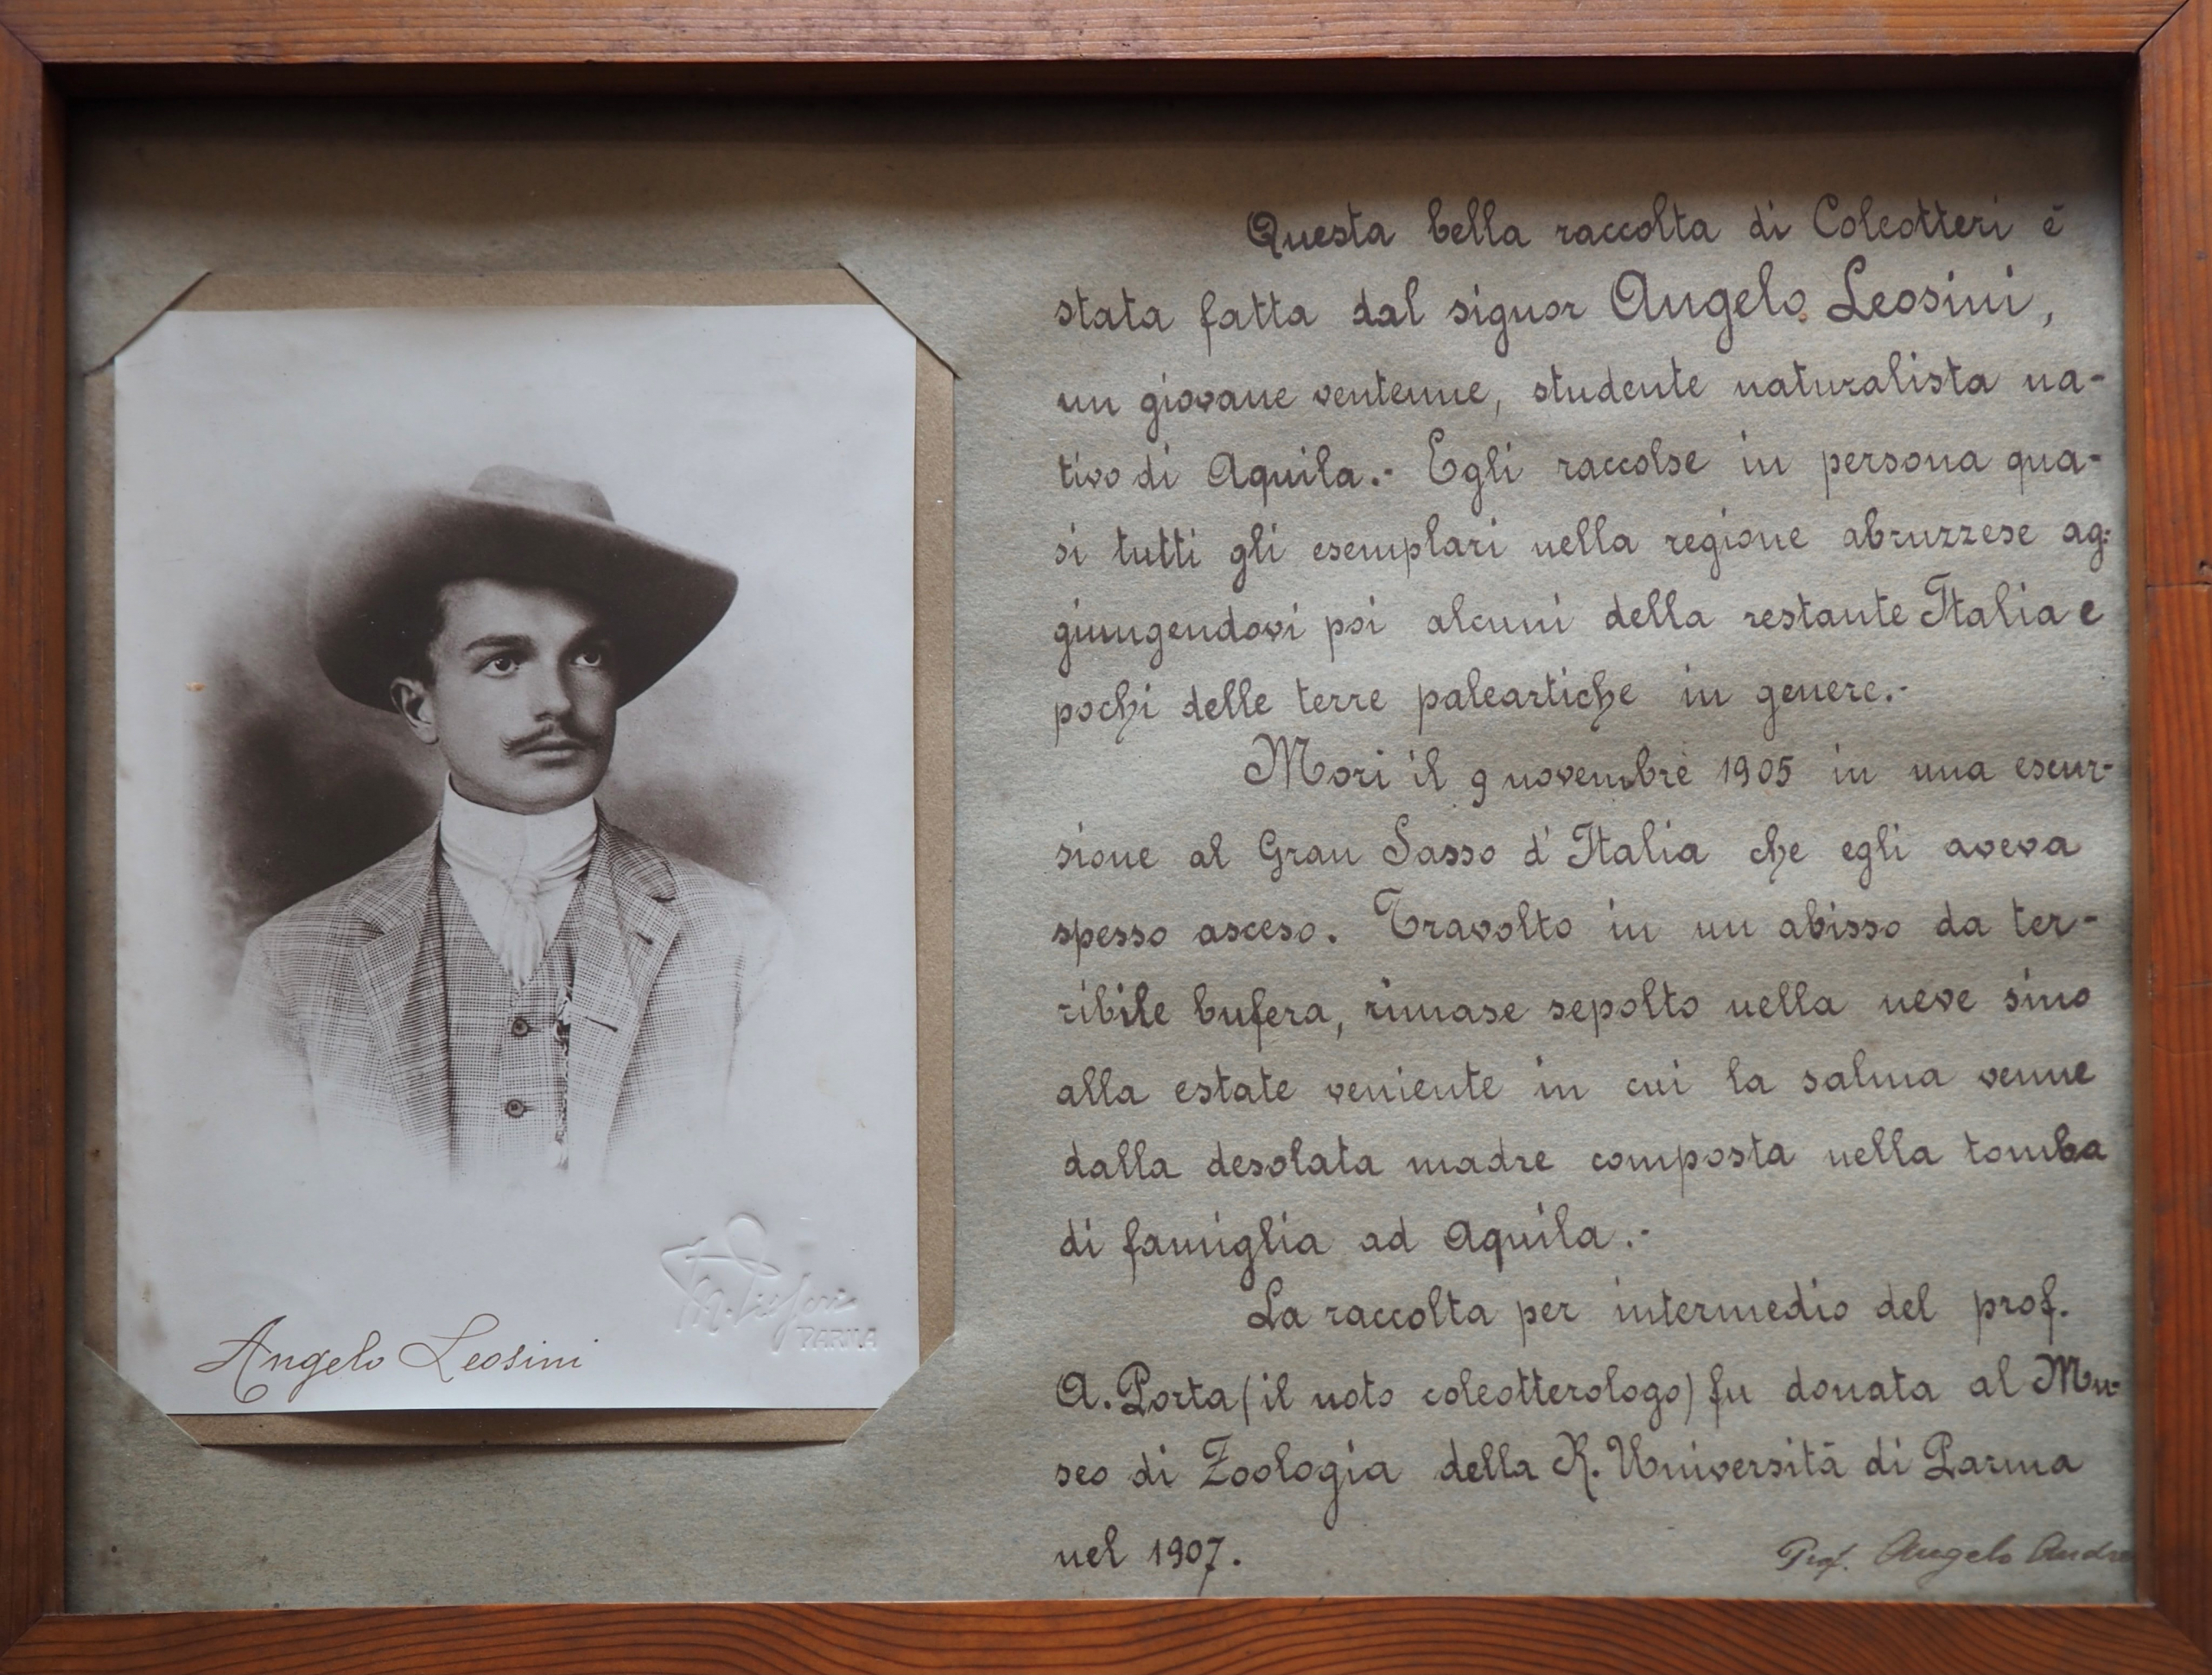 Questa bella raccolta di Coleotteri è
stata fatta dal signor Angelo Leosini,
un giovane ventenne, studente naturalista na-
tivo di Aquila.- Egli raccolse in persona qua-
si tutti gli esemplari nella regione abruzzese ag-
giungendovi poi alcuni della restante Italia e
pochi delle terre paleartiche in genere.-
Morì il 9 novembre 1905 in una escur-
sione al Gran Sasso d'Italia che egli aveva
spesso asceso. Travolto in un abisso da ter-
ribile bufera, rimase sepolto nella neve sino
alla estate veniente in cui la salma venne
dalla desolata madre composta nella tomba
di famiglia ad Aquila.-
La raccolta per intermedio del prof.
A. Porta (il noto coleotterologo) fu donata al Mu-
seo di Zoologia della R. Università di Parma
nel 1907.
Prof. Angelo Andre
Angelo Leosini
PARMA